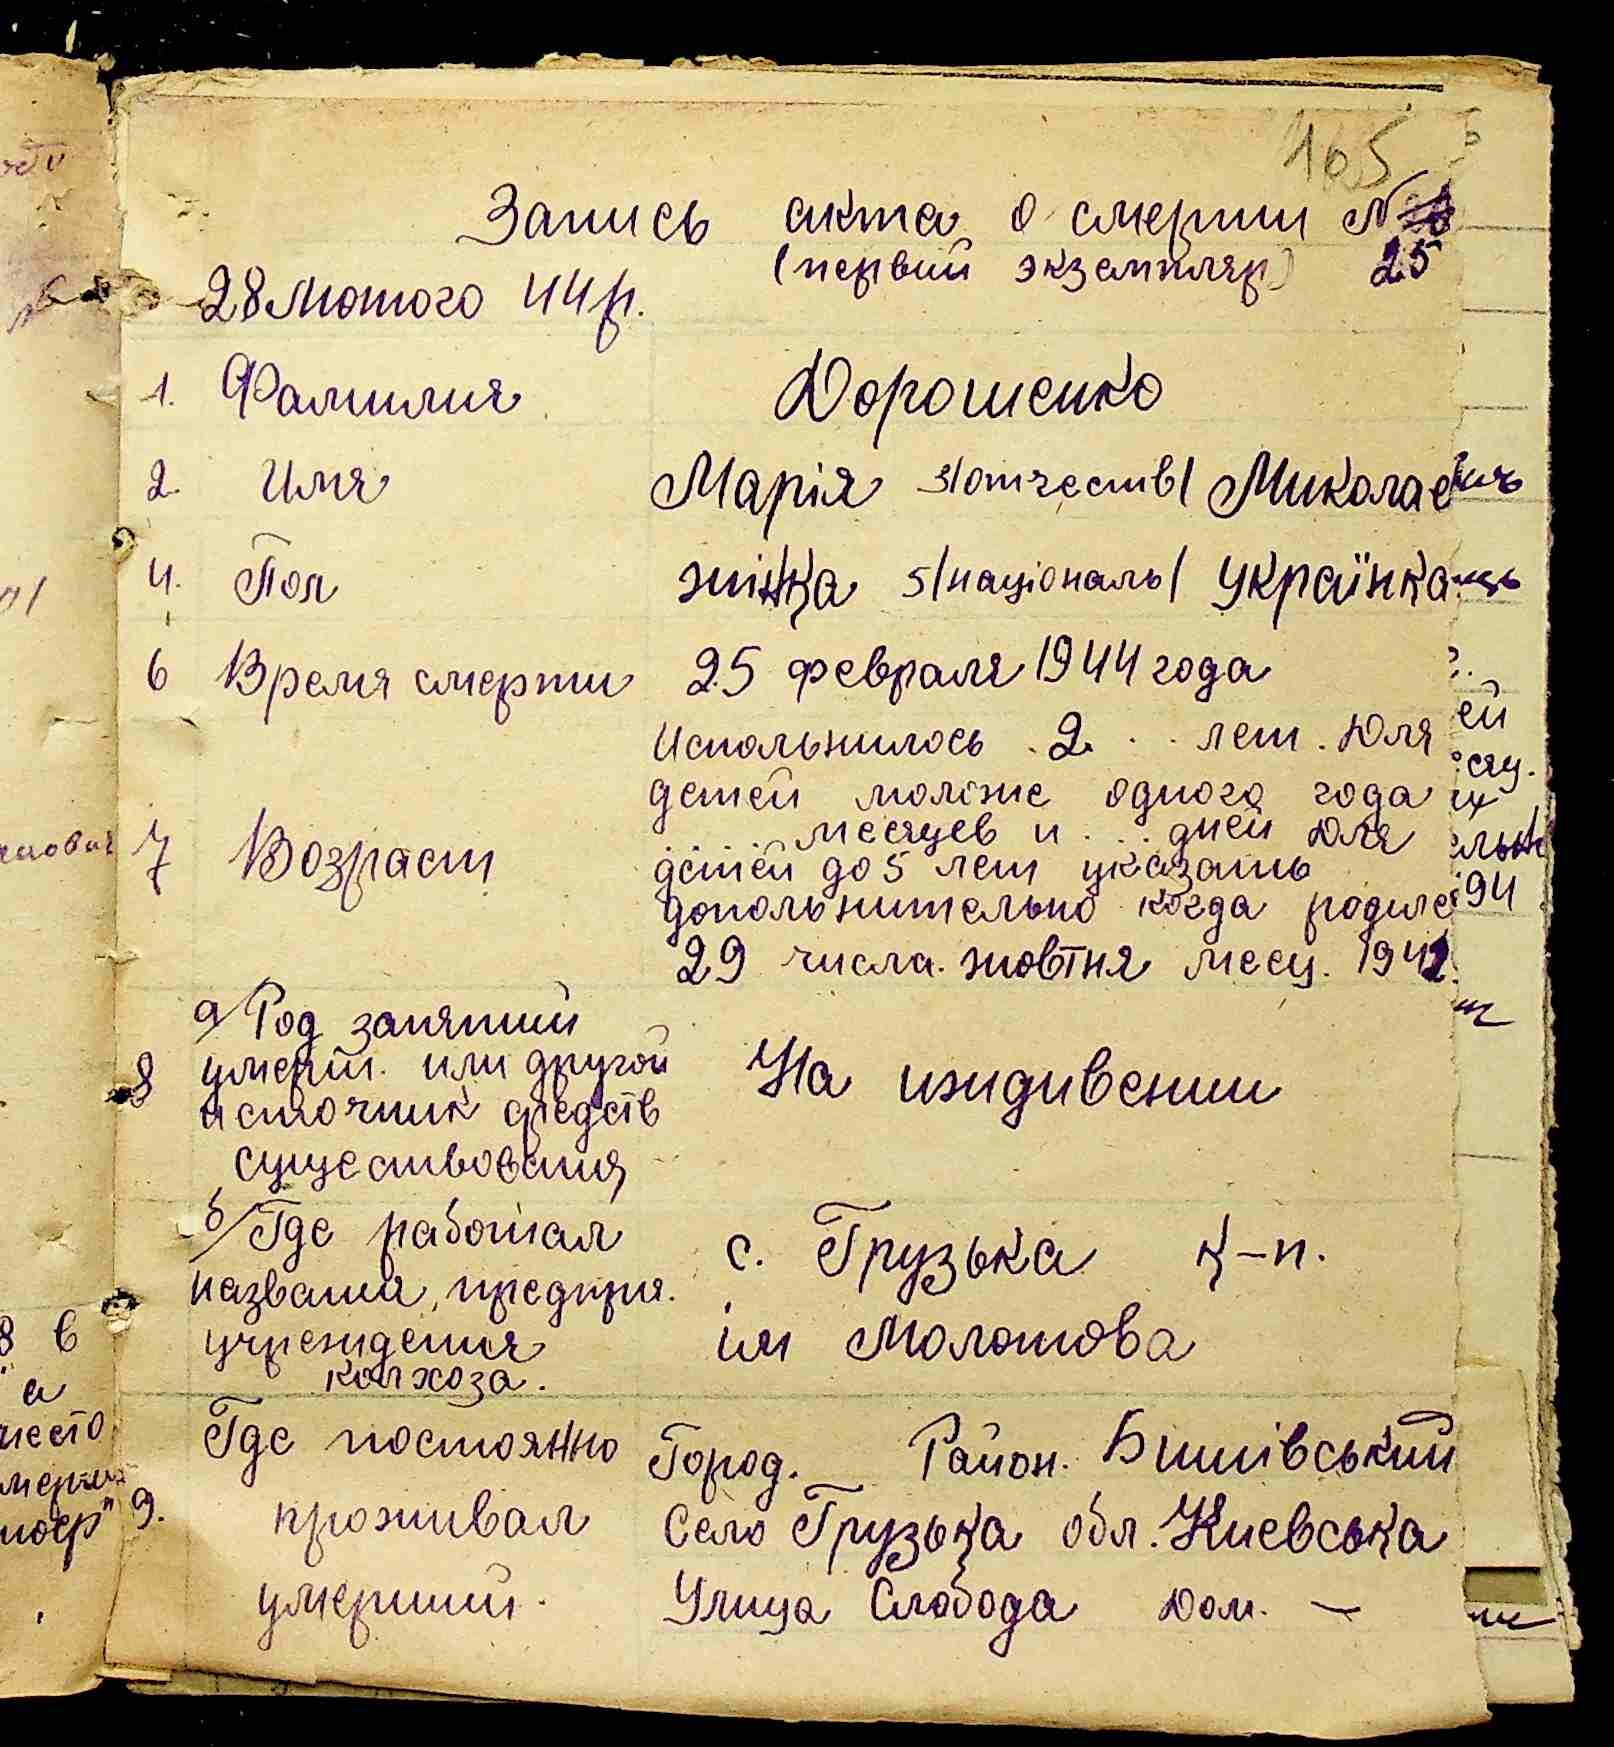 165
Запись акта о смерти №
(первий экземпляр) 25
28 Лютого 44 р.
1. Фамилия Дорошенко
2. Имя Марія 3/отчеств/ Миколае
4. Пол жінка 5/національ/ Українка
6 Время смерти 25 февраля 1944 года
Испольнилось . 2 . . . лет. Для
детей моложе одного года
. . . . месяцев и . . . дней Для
7 Возраст
детей до 5 лет указать
допольнительно когда родилс
29 числа. жовтня месц. 1941
а/ Род занятий
8 умерш. или другой На иждивении
источник средств
существования
б/ Где работал с. Грузька к-п.
названия, предприя.
учреждения ім Молотова
колхоза.
Где постоянно Город. Район. Бишівський
9. проживал Село Грузька обл. Киевська
умерший. Улица Слобода Дом. —